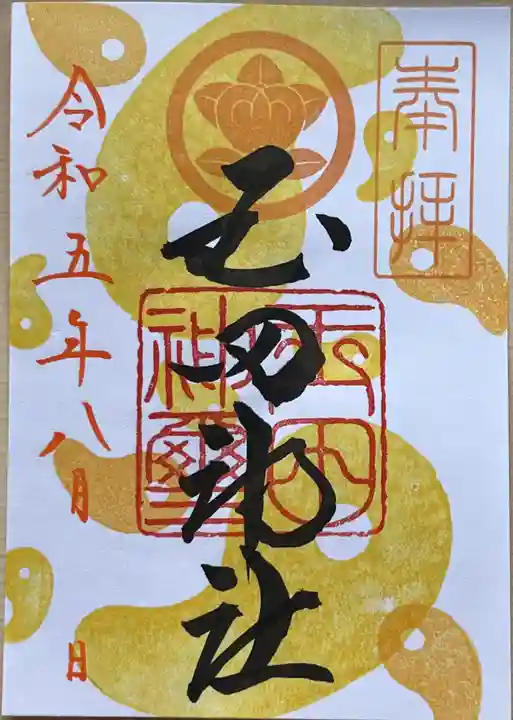 奉拝
玉田神社
玉田神璽
令和五年八月 日